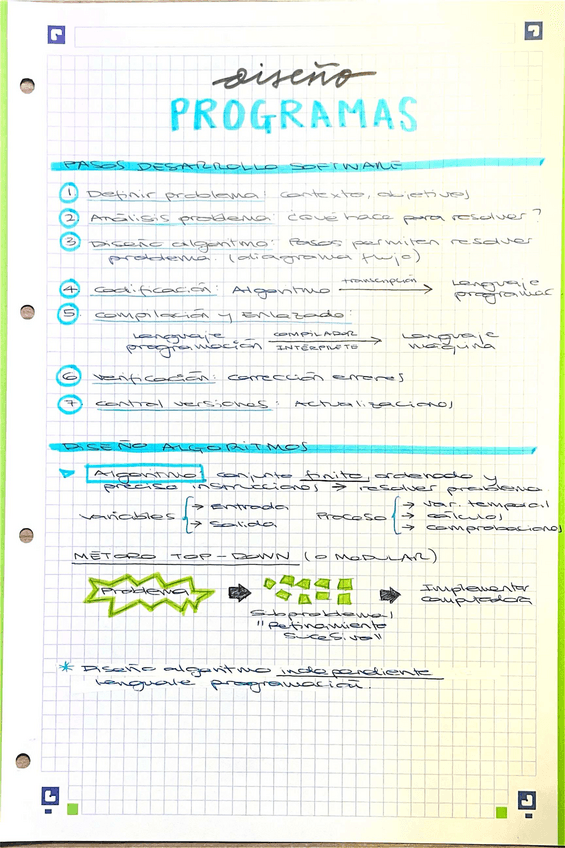 diseño
PROGRAMAS
PASOS DESARROLLO SOFTWARE
1 Definir problema: contexto, objetivos
2 Análisis problema: ¿Qué hace para resolver?
3 Diseño algoritmo: Pasos permiten resolver
problema. (diagrama flujo)
4 Codificación: Algoritmo transcripción → Lenguaje
programac.
5 Compilación y Enlazado:
Lenguaje programación COMPILADOR INTÉRPRETE → Lenguaje máquina
6 Verificación: corrección errores
7 Control versiones: Actualizaciones
DISEÑO ALGORITMOS
Algoritmo: conjunto finito, ordenado y
preciso instrucciones → resolver problema
variables → entrada
→ salida
Proceso → var. temporal
→ cálculos
→ comprobaciones
MÉTODO TOP-DOWN (O MODULAR)
Problema
Subproblemas
"Refinamiento
Sucesivo"
Implementar
computadora
* Diseño algoritmo independiente
lenguaje programación.